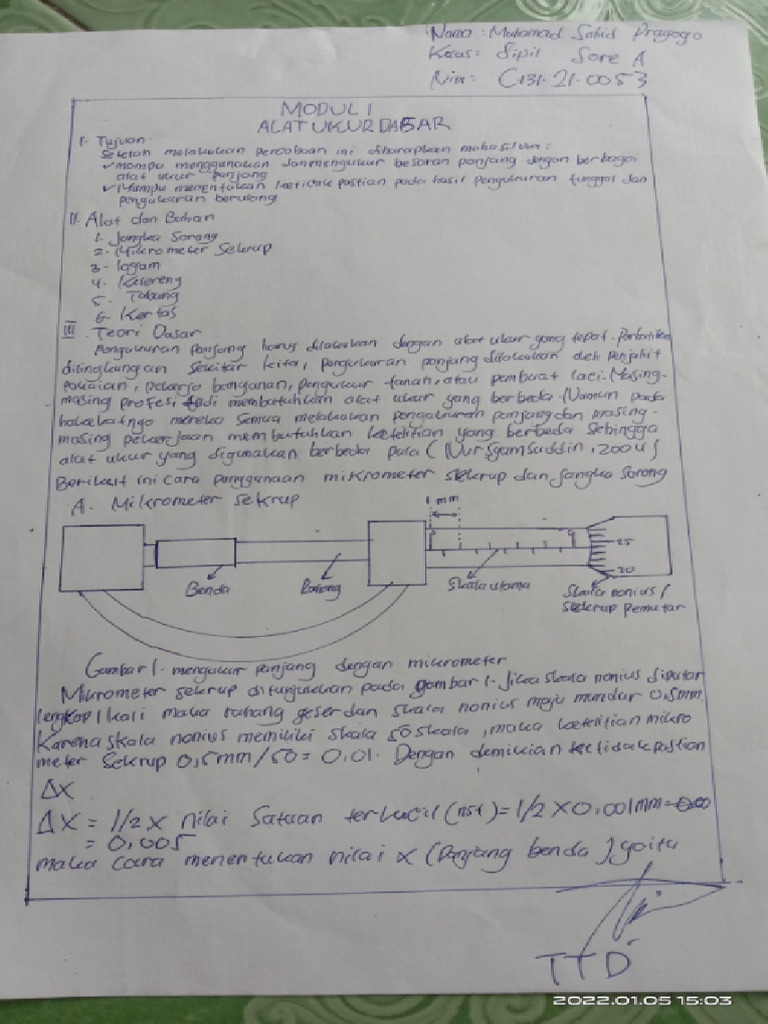 Nama : Muhamad Sahid Prayogo
Kelas : Sipil Sore A
Nim : C.131.21.0053
MODUL 1
ALAT UKUR DASAR
I. Tujuan
Setelah melakukan percobaan ini diharapkan mahasiswa :
✓ mampu menggunakan dan mengukur besaran panjang dengan berbagai
alat ukur panjang
✓ Mampu menentukan ketidak pastian pada hasil pengukuran tunggal dan
pengukuran berulang
II. Alat dan Bahan
1. Jangka Sorong
2. Mikrometer Sekrup
3. logam
4. Kelereng
5. Tabung
6. Kertas
III. Teori Dasar
Pengukuran panjang harus dilakukan dengan alat ukur yang tepat. Perhatikan
dilingkungan sekitar kita, pengukuran panjang dilakukan oleh penjahit
pakaian, pekerja bangunan, pengukur tanah, atau pembuat laci. Masing-
masing profesi tadi membutuhkan alat ukur yang berbeda. Namun pada
hakekatnya mereka semua melakukan pengukuran panjang dan masing-
masing pekerjaan membutuhkan ketelitian yang berbeda sehingga
alat ukur yang digunakan berbeda pula (Nur Syamsuddin, 2004)
Berikut ini cara penggunaan mikrometer sekrup dan jangka sorong
A. Mikrometer sekrup
1 mm
25
20
Benda
Rahang
Skala utama
Skala nonius /
sekrup pemutar
Gambar 1. mengukur panjang dengan mikrometer
Mikrometer sekrup ditunjukkan pada gambar 1. Jika skala nonius diputar
lengkap 1 kali maka rahang geser dan skala nonius maju mundur 0,5 mm.
Karena skala nonius memiliki skala 50 skala, maka ketelitian mikro
meter Sekrup 0,5 mm / 50 = 0,01. Dengan demikian ketidakpastian
ΔX
ΔX = 1/2 x nilai Satuan terkecil (nst) = 1/2 x 0,001 mm
= 0,005
maka cara menentukan nilai x (Panjang benda) yaitu
TTD
2022.01.05 15:03